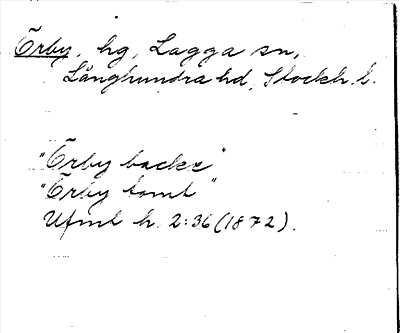 Örby, hg, Lagga sn,
Långhundra hd, Stockh. l.
"Örby backe"
"Örby tomt"
Ufmt h. 2:36 (1872).